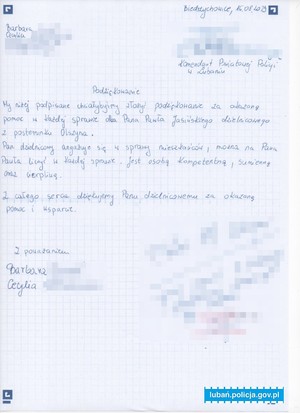 Biedrzychowice, 16.01.2023
Barbara
Cecylia
Komendant Powiatowy Policji
w Lubaniu
Podziękowanie
My niżej podpisane chciałybyśmy złożyć podziękowanie za okazaną
pomoc w każdej sprawie dla Pana Pawła Jasińskiego dzielnicowego
z posterunku Olszyna.
Pan dzielnicowy angażuje się w sprawy mieszkańców, można na Pana
Pawła liczyć w każdej sprawie. Jest osobą kompetentną, sumienną
oraz cierpliwą.
Z całego serca dziękujemy Panu dzielnicowemu za okazaną
pomoc i wsparcie.
Z poważaniem
Barbara
Cecylia
luban.policja.gov.pl